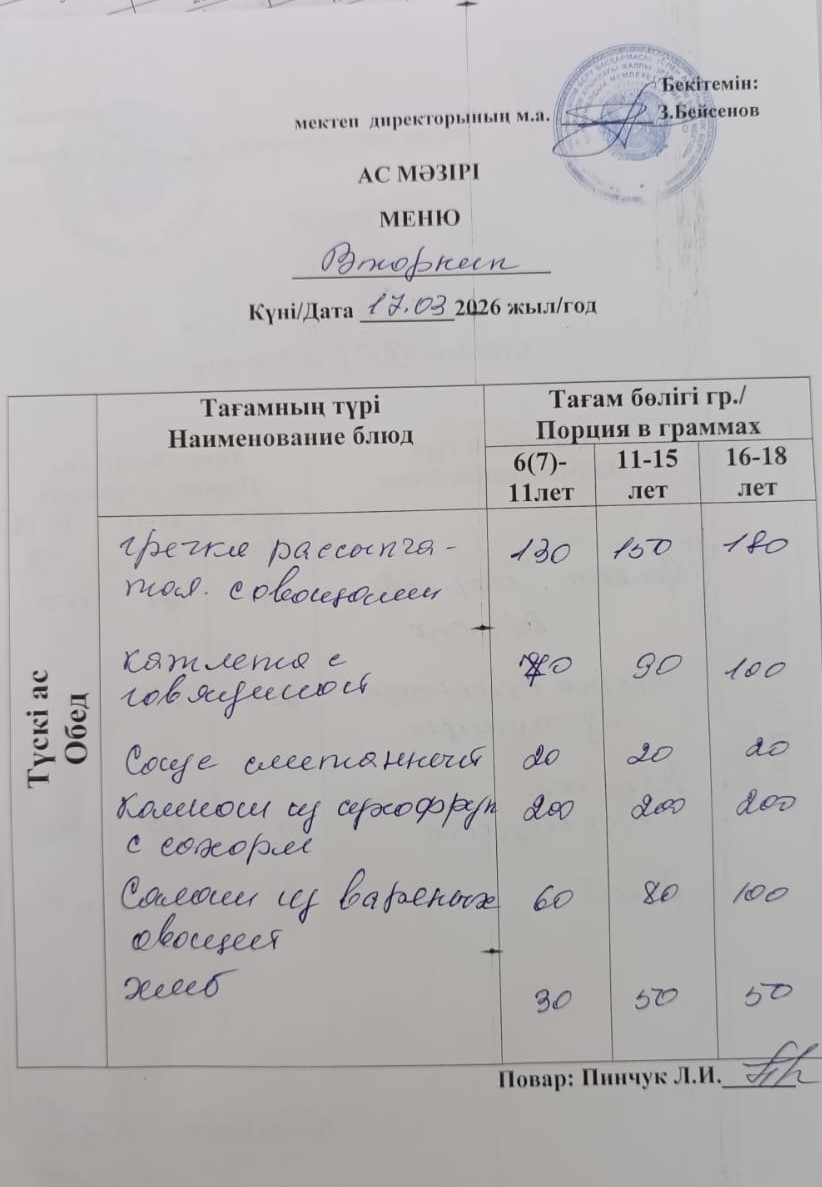 Бекітемін:
мектеп директорының м.а. ________ З.Бейсенов
АС МӘЗІРІ
МЕНЮ
Вторник
Күні/Дата 17.03 2026 жыл/год
Тағамның түрі
Наименование блюд
Тағам бөлігі гр./
Порция в граммах
6(7)-
11лет
11-15
лет
16-18
лет
Түскі ас
Обед
гречка рассыпча- 130 150 180
тая. с овощами
котлета с 70 90 100
говядиной
Соус сметанный 20 20 20
Компот из сухофрук 200 200 200
с сахаром
Салат из вареных 60 80 100
овощей
хлеб 30 50 50
Повар: Пинчук Л.И.